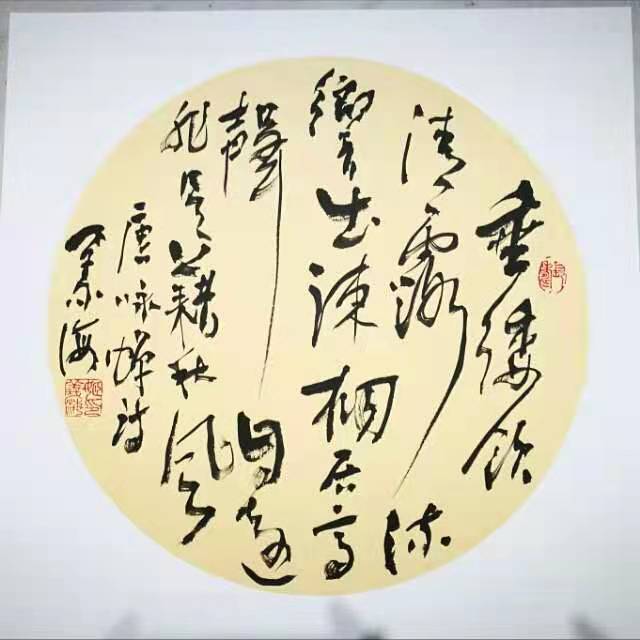 垂緌飲
清露流
響出疎桐居高
聲自遠
非是藉秋風
唐咏蟬詩
海